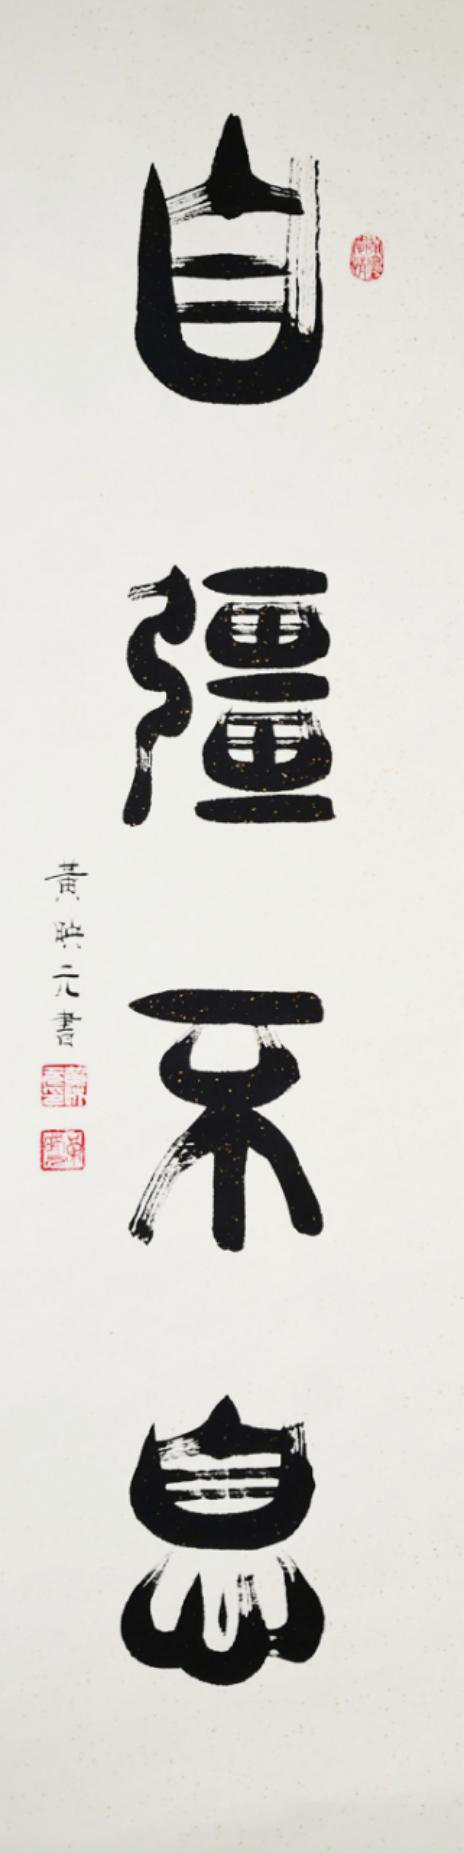 自彊不息
黄映元書